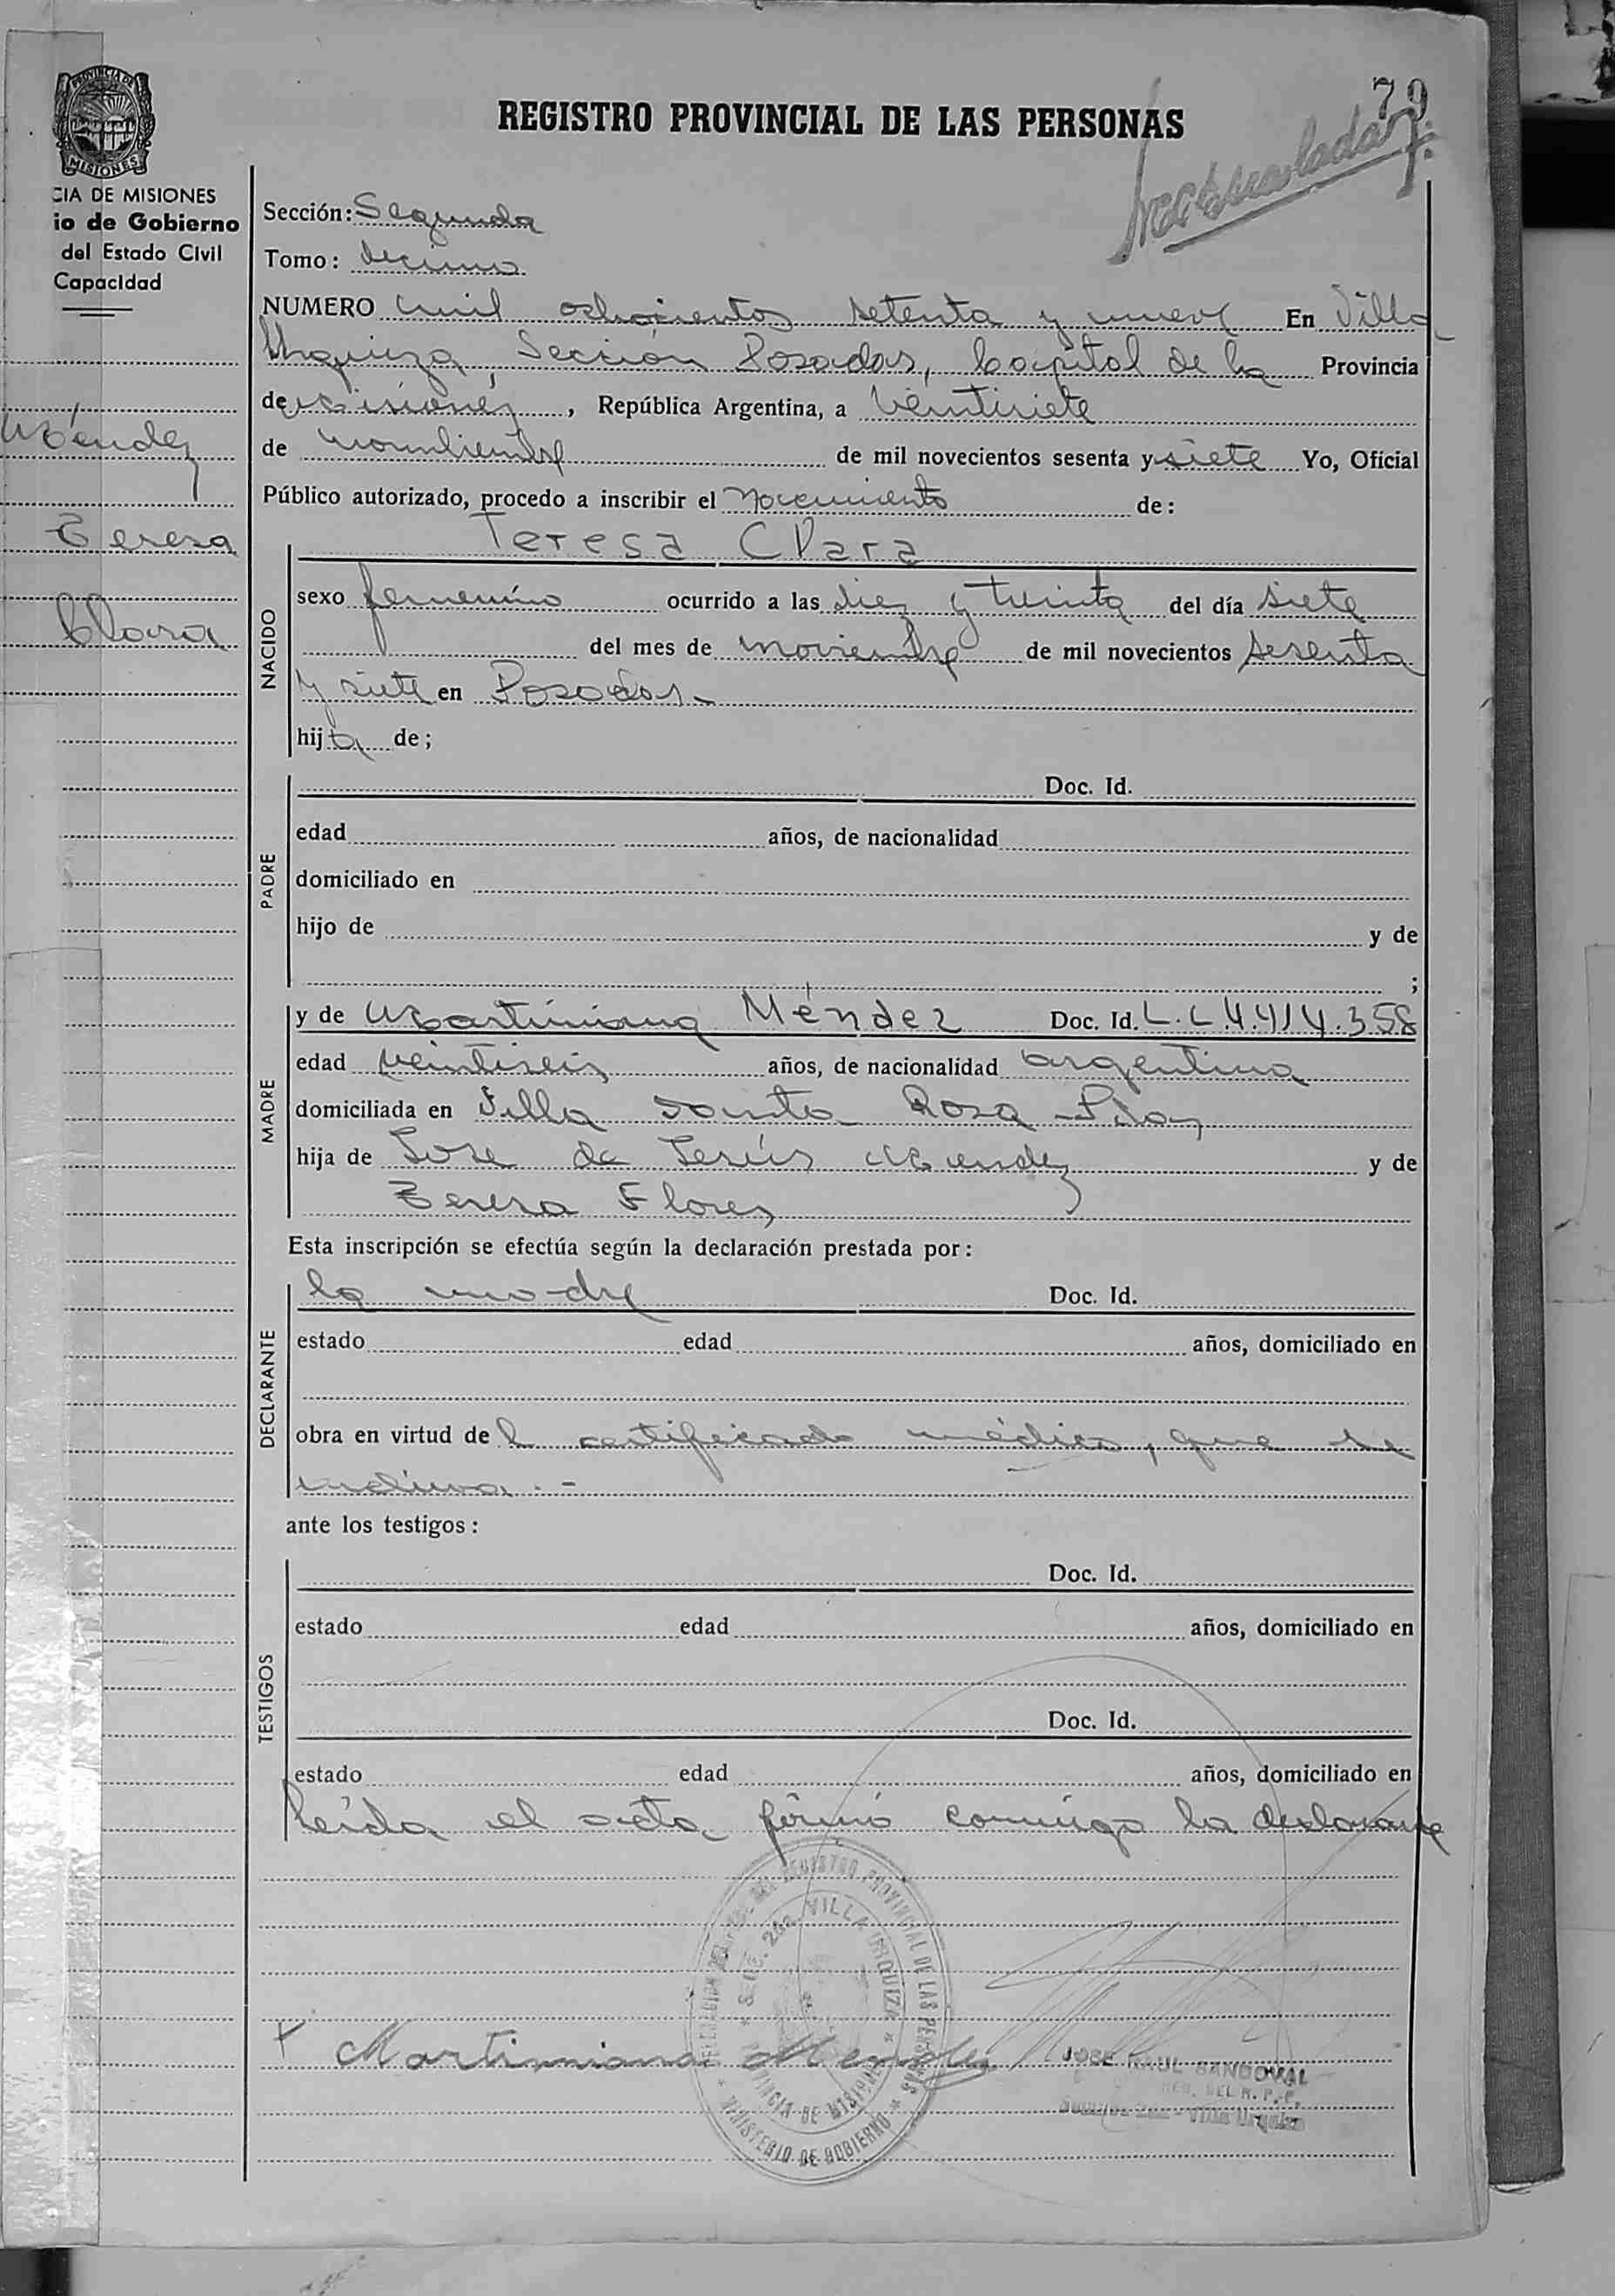 79
REGISTRO PROVINCIAL DE LAS PERSONAS
PROVINCIA DE
MISIONES
CIA DE MISIONES
io de Gobierno
del Estado Civil
Capacidad
Méndez
Teresa
Clara
Sección: Segunda
Tomo: decimo
NUMERO mil ochocientos setenta y nueve En Villa
Urquiza, Sección Posadas, Capital de la Provincia
de Misiones, República Argentina, a veintisiete
de noviembre de mil novecientos sesenta y siete Yo, Oficial
Público autorizado, procedo a inscribir el nacimiento de:
Teresa Clara
NACIDO
sexo femenino ocurrido a las diez y treinta del día siete
del mes de noviembre de mil novecientos sesenta
y siete en Posadas.-
hija de;
PADRE
Doc. Id.
edad años, de nacionalidad
domiciliado en
hijo de y de
;
MADRE
y de Martiniana Méndez Doc. Id. L.C 4.414.358
edad veintiseis años, de nacionalidad argentina
domiciliada en Villa Santa Rosa - Pdas
hija de Jose de Jesús Mendez y de
Teresa Flores
Esta inscripción se efectúa según la declaración prestada por:
DECLARANTE
la madre Doc. Id.
estado edad años, domiciliado en
obra en virtud del certificado médico, que se
archiva.-
ante los testigos:
TESTIGOS
Doc. Id.
estado edad años, domiciliado en
Doc. Id.
estado edad años, domiciliado en
Leída el acta firmó conmigo la declarante
DEL REGISTRO PROVINCIAL DE LAS PERSONAS
SECC. 2da. VILLA URQUIZA
PROVINCIA DE MISIONES
MINISTERIO DE GOBIERNO
Martiniana Mendez
JOSE RAUL SANDOVAL
DEL R. P. P.
Sección 2da - Villa Urquiza